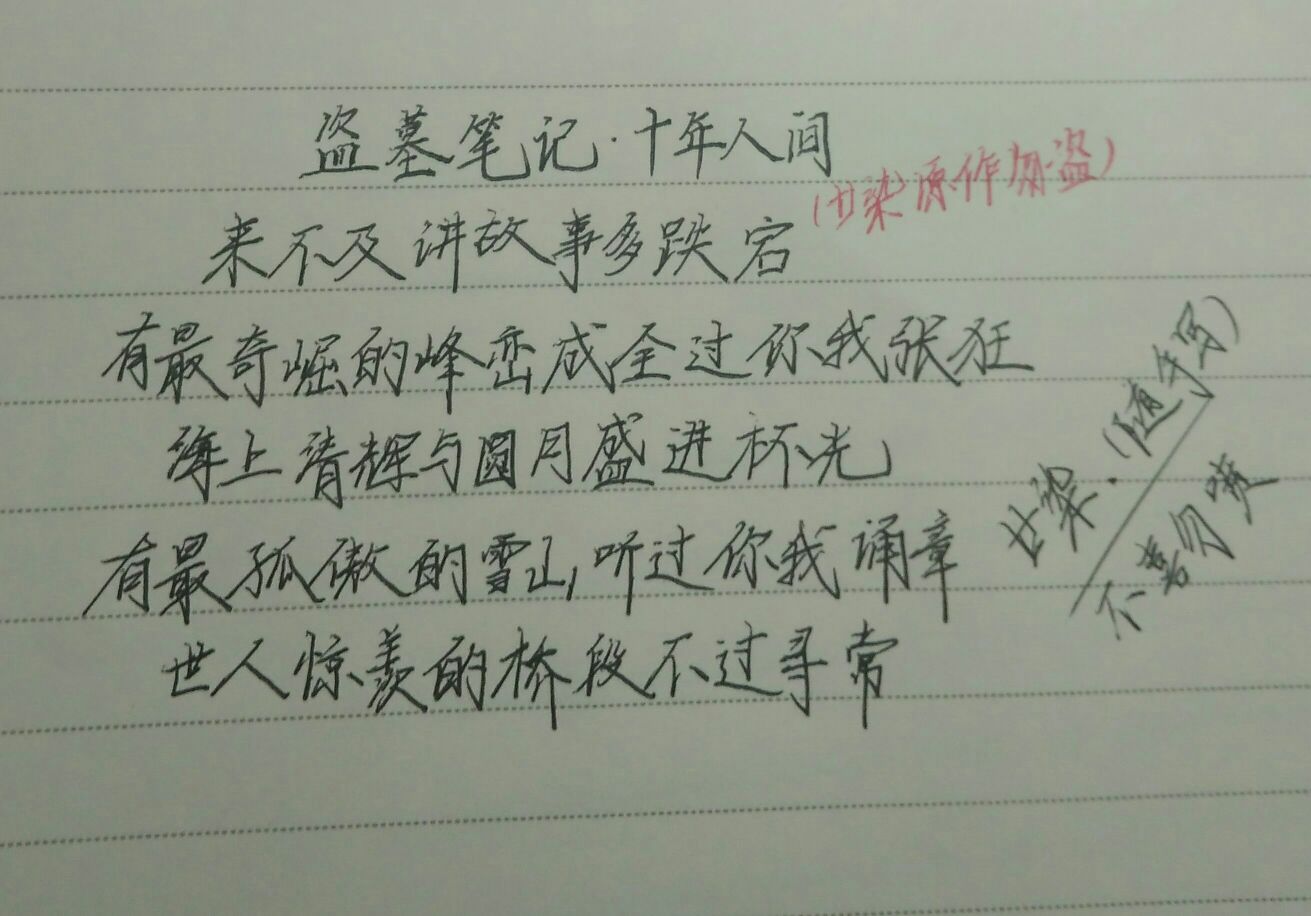 盗墓笔记·十年人间
(廿染原作勿盗)
来不及讲故事多跌宕
有最奇崛的峰峦成全过你我张狂
海上清辉与圆月盛进杯光
有最孤傲的雪山听过你我诵章
世人惊羡的桥段不过寻常
廿染.(随手写)
不喜勿喷